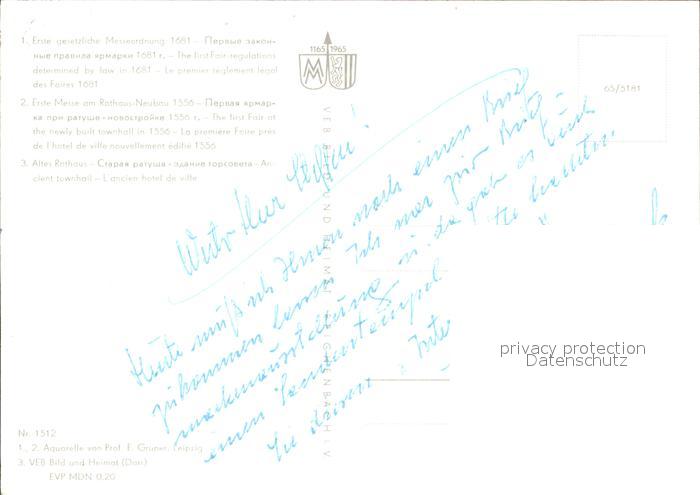 1. Erste gesetzliche Messeordnung 1681 – Первые закон-
ные правила ярмарки 1681 г. – The first Fair regulations
determined by law in 1681 – Le premier règlement légal
des Foires 1681
2. Erste Messe am Rathaus-Neubau 1556 – Первая ярмар-
ка при ратуше-новостройке 1556 г. – The first Fair at
the newly built townhall in 1556 – La première Foire près
de l'hotel de ville nouvellement édifié 1556
3. Altes Rathaus – Старая ратуша - здание торсовета – An-
cient townhall – L'ancien hotel de ville
1165 1965
65/5181
VEB BILD UND HEIMAT REICHENBACH I.V.
Herr
Heute muß ich Ihnen noch einen Brief
zukommen lassen. Ich war zur Brief-
markenausstellung u. da gab es
einen Sonderstempel
Sie
privacy protection
Datenschutz
Nr. 1512
1., 2. Aquarelle von Prof. E. Gruner, Leipzig
3. VEB Bild und Heimat (Darr)
EVP MDN 0,20